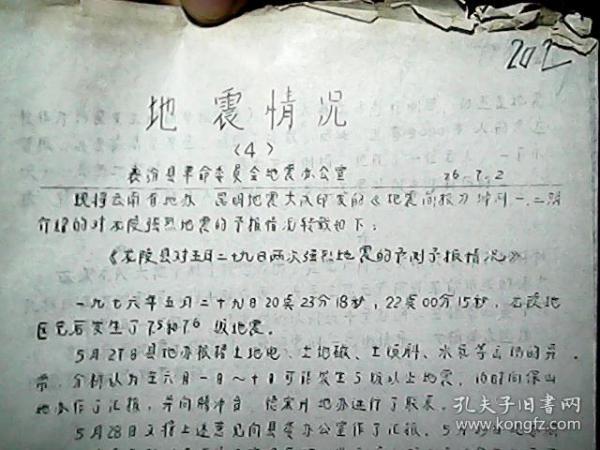 202
地震情况
(4)
县革命委员会地震办公室 76.7.2
现将云南省地办、昆明地震大队印发的《地震简报》增刊一、二期
介绍的对龙陵强烈地震的予报情况转载如下:
《龙陵县对五月二十九日两次强烈地震的予测予报情况》
一九七六年五月二十九日20点23分18秒,22点00分15秒,龙陵地
区先后发生了75和76级地震。
5月27日县地办根据土地电、土地磁、土倾斜、水氡等手段的异
常,分析认为至六月一日~十日可能发生5级以上地震,同时向保山
地办作了汇报,并向腾冲台、德宏州地办进行了联系。
5月28日又将上述意见向县委办公室作了汇报。5月
孔夫子旧书网
www.kongfz.com